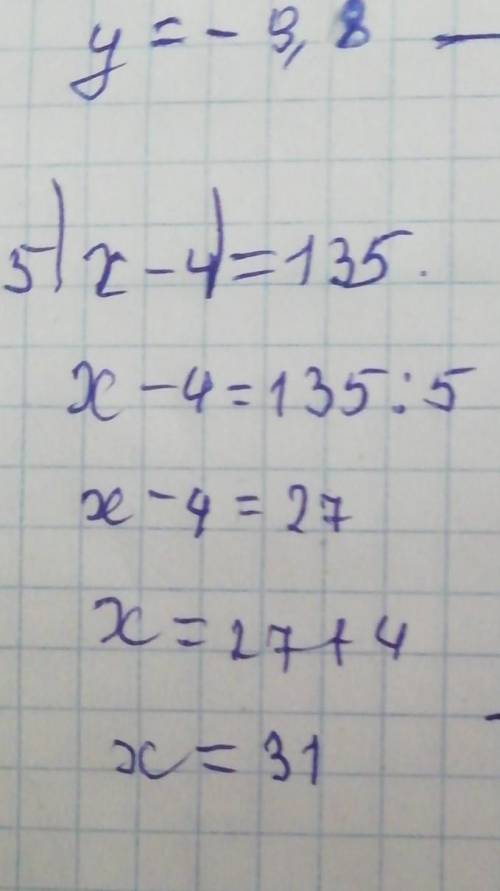 y = - 9,8 —
5|x - 4| = 135.
x - 4 = 135 : 5
x - 4 = 27
x = 27 + 4
x = 31